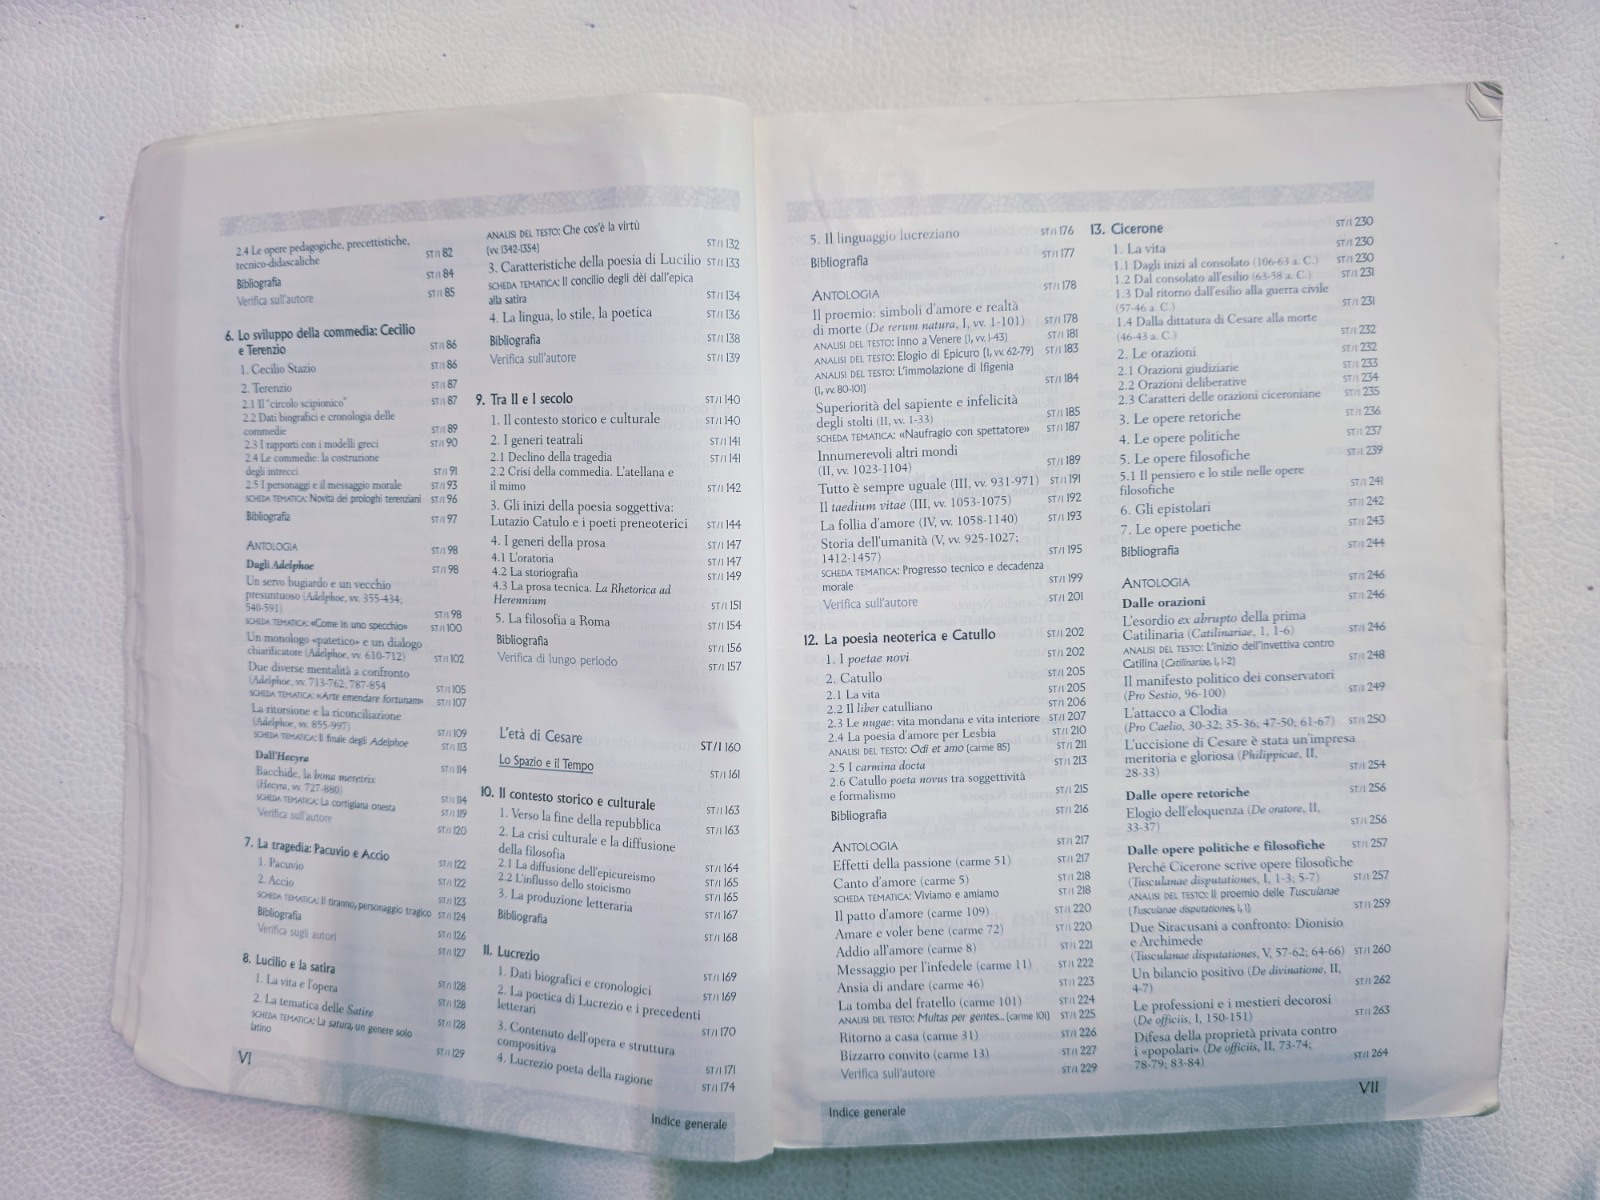 2.4 Le opere pedagogiche, precettistiche,
tecnico-didascaliche ST/I 82
Bibliografia ST/I 84
Verifica sull'autore ST/I 85
6. Lo sviluppo della commedia: Cecilio
e Terenzio ST/I 86
1. Cecilio Stazio ST/I 86
2. Terenzio ST/I 87
2.1 Il "circolo scipionico" ST/I 87
2.2 Dati biografici e cronologia delle
commedie ST/I 89
2.3 I rapporti con i modelli greci ST/I 90
2.4 Le commedie: la costruzione
degli intrecci ST/I 91
2.5 I personaggi e il messaggio morale ST/I 93
SCHEDA TEMATICA: Novità dei prologhi terenziani ST/I 96
Bibliografia ST/I 97
ANTOLOGIA ST/I 98
Dagli Adelphoe ST/I 98
Un servo bugiardo e un vecchio
presuntuoso (Adelphoe, vv. 355-434;
540-591) ST/I 98
SCHEDA TEMATICA: «Come in uno specchio» ST/I 100
Un monologo «patetico» e un dialogo
chiarificatore (Adelphoe, vv. 610-712) ST/I 102
Due diverse mentalità a confronto
(Adelphoe, vv. 713-762; 787-854 ST/I 105
SCHEDA TEMATICA: «Arte emendare fortunam» ST/I 107
La ritorsione e la riconciliazione
(Adelphoe, vv. 855-997) ST/I 109
SCHEDA TEMATICA: Il finale degli Adelphoe ST/I 113
Dall'Hecyra ST/I 114
Bacchide, la bona meretrix
(Hecyra, vv. 727-880) ST/I 114
SCHEDA TEMATICA: La cortigiana onesta ST/I 119
Verifica sull'autore ST/I 120
7. La tragedia: Pacuvio e Accio ST/I 122
1. Pacuvio ST/I 122
2. Accio ST/I 123
SCHEDA TEMATICA: Il tiranno, personaggio tragico ST/I 124
Bibliografia ST/I 126
Verifica sugli autori ST/I 127
8. Lucilio e la satira ST/I 128
1. La vita e l'opera ST/I 128
2. La tematica delle Satire ST/I 128
SCHEDA TEMATICA: La satura, un genere solo
latino ST/I 129
VI
ANALISI DEL TESTO: Che cos'è la virtù
(vv. 1342-1354) ST/I 132
3. Caratteristiche della poesia di Lucilio ST/I 133
SCHEDA TEMATICA: Il concilio degli dèi dall'epica
alla satira ST/I 134
4. La lingua, lo stile, la poetica ST/I 136
Bibliografia ST/I 138
Verifica sull'autore ST/I 139
9. Tra II e I secolo ST/I 140
1. Il contesto storico e culturale ST/I 140
2. I generi teatrali ST/I 141
2.1 Declino della tragedia ST/I 141
2.2 Crisi della commedia. L'atellana e
il mimo ST/I 142
3. Gli inizi della poesia soggettiva:
Lutazio Catulo e i poeti preneoterici ST/I 144
4. I generi della prosa ST/I 147
4.1 L'oratoria ST/I 147
4.2 La storiografia ST/I 149
4.3 La prosa tecnica. La Rhetorica ad
Herennium ST/I 151
5. La filosofia a Roma ST/I 154
Bibliografia ST/I 156
Verifica di lungo periodo ST/I 157
L'età di Cesare ST/I 160
Lo Spazio e il Tempo ST/I 161
10. Il contesto storico e culturale ST/I 163
1. Verso la fine della repubblica ST/I 163
2. La crisi culturale e la diffusione
della filosofia ST/I 164
2.1 La diffusione dell'epicureismo ST/I 165
2.2 L'influsso dello stoicismo ST/I 165
3. La produzione letteraria ST/I 167
Bibliografia ST/I 168
11. Lucrezio ST/I 169
1. Dati biografici e cronologici ST/I 169
2. La poetica di Lucrezio e i precedenti
letterari ST/I 170
3. Contenuto dell'opera e struttura
compositiva ST/I 171
4. Lucrezio poeta della ragione ST/I 174
Indice generale
5. Il linguaggio lucreziano ST/I 176
Bibliografia ST/I 177
ANTOLOGIA ST/I 178
Il proemio: simboli d'amore e realtà
di morte (De rerum natura, I, vv. 1-101) ST/I 178
ANALISI DEL TESTO: Inno a Venere (I, vv. 1-43) ST/I 181
ANALISI DEL TESTO: Elogio di Epicuro (I, vv. 62-79) ST/I 183
ANALISI DEL TESTO: L'immolazione di Ifigenia
(I, vv. 80-101) ST/I 184
Superiorità del sapiente e infelicità
degli stolti (II, vv. 1-33) ST/I 185
SCHEDA TEMATICA: «Naufragio con spettatore» ST/I 187
Innumerevoli altri mondi
(II, vv. 1023-1104) ST/I 189
Tutto è sempre uguale (III, vv. 931-971) ST/I 191
Il taedium vitae (III, vv. 1053-1075) ST/I 192
La follia d'amore (IV, vv. 1058-1140) ST/I 193
Storia dell'umanità (V, vv. 925-1027;
1412-1457) ST/I 195
SCHEDA TEMATICA: Progresso tecnico e decadenza
morale ST/I 199
Verifica sull'autore ST/I 201
12. La poesia neoterica e Catullo ST/I 202
1. I poetae novi ST/I 202
2. Catullo ST/I 205
2.1 La vita ST/I 205
2.2 Il liber catulliano ST/I 206
2.3 Le nugae: vita mondana e vita interiore ST/I 207
2.4 La poesia d'amore per Lesbia ST/I 210
ANALISI DEL TESTO: Odi et amo (carme 85) ST/I 211
2.5 I carmina docta ST/I 213
2.6 Catullo poeta novus tra soggettività
e formalismo ST/I 215
Bibliografia ST/I 216
ANTOLOGIA ST/I 217
Effetti della passione (carme 51) ST/I 217
Canto d'amore (carme 5) ST/I 218
SCHEDA TEMATICA: Viviamo e amiamo ST/I 218
Il patto d'amore (carme 109) ST/I 220
Amare e voler bene (carme 72) ST/I 220
Addio all'amore (carme 8) ST/I 221
Messaggio per l'infedele (carme 11) ST/I 222
Ansia di andare (carme 46) ST/I 223
La tomba del fratello (carme 101) ST/I 224
ANALISI DEL TESTO: Multas per gentes... (carme 101) ST/I 225
Ritorno a casa (carme 31) ST/I 226
Bizzarro convito (carme 13) ST/I 227
Verifica sull'autore ST/I 229
Indice generale
13. Cicerone ST/I 230
1. La vita ST/I 230
1.1 Dagli inizi al consolato (106-63 a. C.) ST/I 230
1.2 Dal consolato all'esilio (63-58 a. C.) ST/I 231
1.3 Dal ritorno dall'esilio alla guerra civile
(57-46 a. C.) ST/I 231
1.4 Dalla dittatura di Cesare alla morte
(46-43 a. C.) ST/I 232
2. Le orazioni ST/I 232
2.1 Orazioni giudiziarie ST/I 233
2.2 Orazioni deliberative ST/I 234
2.3 Caratteri delle orazioni ciceroniane ST/I 235
3. Le opere retoriche ST/I 236
4. Le opere politiche ST/I 237
5. Le opere filosofiche ST/I 239
5.1 Il pensiero e lo stile nelle opere
filosofiche ST/I 241
6. Gli epistolari ST/I 242
7. Le opere poetiche ST/I 243
Bibliografia ST/I 244
ANTOLOGIA ST/I 246
Dalle orazioni ST/I 246
L'esordio ex abrupto della prima
Catilinaria (Catilinariae, 1, 1-6) ST/I 246
ANALISI DEL TESTO: L'inizio dell'invettiva contro
Catilina (Catilinariae, I, 1-2) ST/I 248
Il manifesto politico dei conservatori
(Pro Sestio, 96-100) ST/I 249
L'attacco a Clodia
(Pro Caelio, 30-32; 35-36; 47-50; 61-67) ST/I 250
L'uccisione di Cesare è stata un'impresa
meritoria e gloriosa (Philippicae, II,
28-33) ST/I 254
Dalle opere retoriche ST/I 256
Elogio dell'eloquenza (De oratore, II,
33-37) ST/I 256
Dalle opere politiche e filosofiche ST/I 257
Perché Cicerone scrive opere filosofiche
(Tusculanae disputationes, I, 1-3; 5-7) ST/I 257
ANALISI DEL TESTO: Il proemio delle Tusculanae
(Tusculanae disputationes, I, 1) ST/I 259
Due Siracusani a confronto: Dionisio
e Archimede
(Tusculanae disputationes, V, 57-62; 64-66) ST/I 260
Un bilancio positivo (De divinatione, II,
4-7) ST/I 262
Le professioni e i mestieri decorosi
(De officiis, I, 150-151) ST/I 263
Difesa della proprietà privata contro
i «popolari» (De officiis, II, 73-74;
78-79; 83-84) ST/I 264
VII